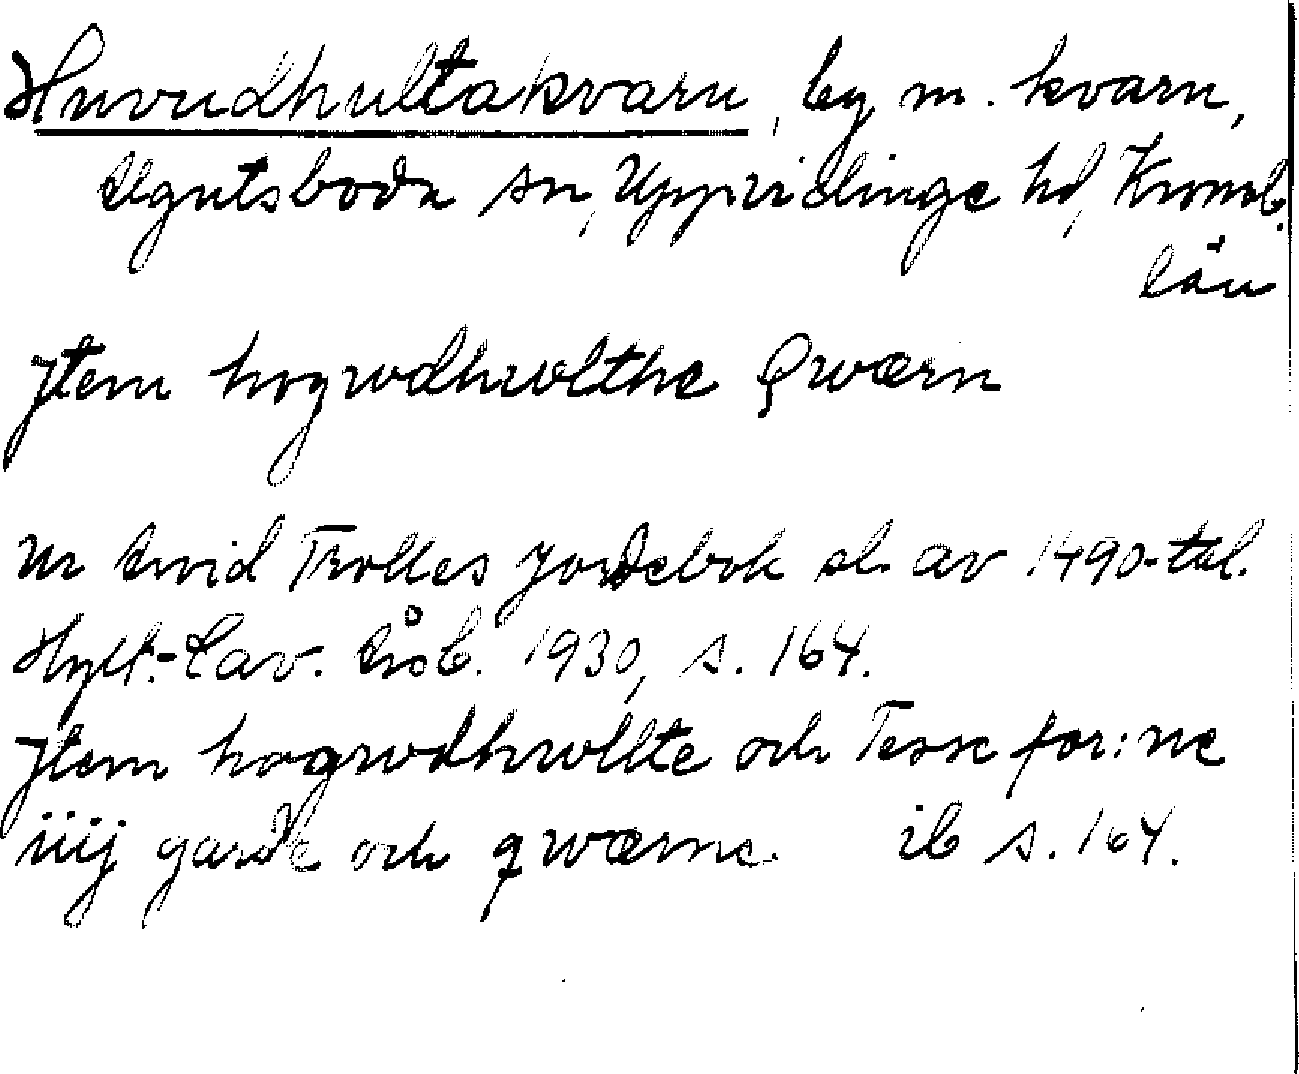 Huvudhultakvarn, by m. kvarn,
Älgutsboda sn, Uppvidinge hd, Kronob.
län
jtem hogwdhwlthe Qwærn
Ur Arvid Trolles jordebok sl. av 1490-tal.
Hylt.-Cav. Årsb. 1930, s. 164.
jtem hogwdhwllte och Tesse for:ne
iiij garde och qwærne. ib s. 164.